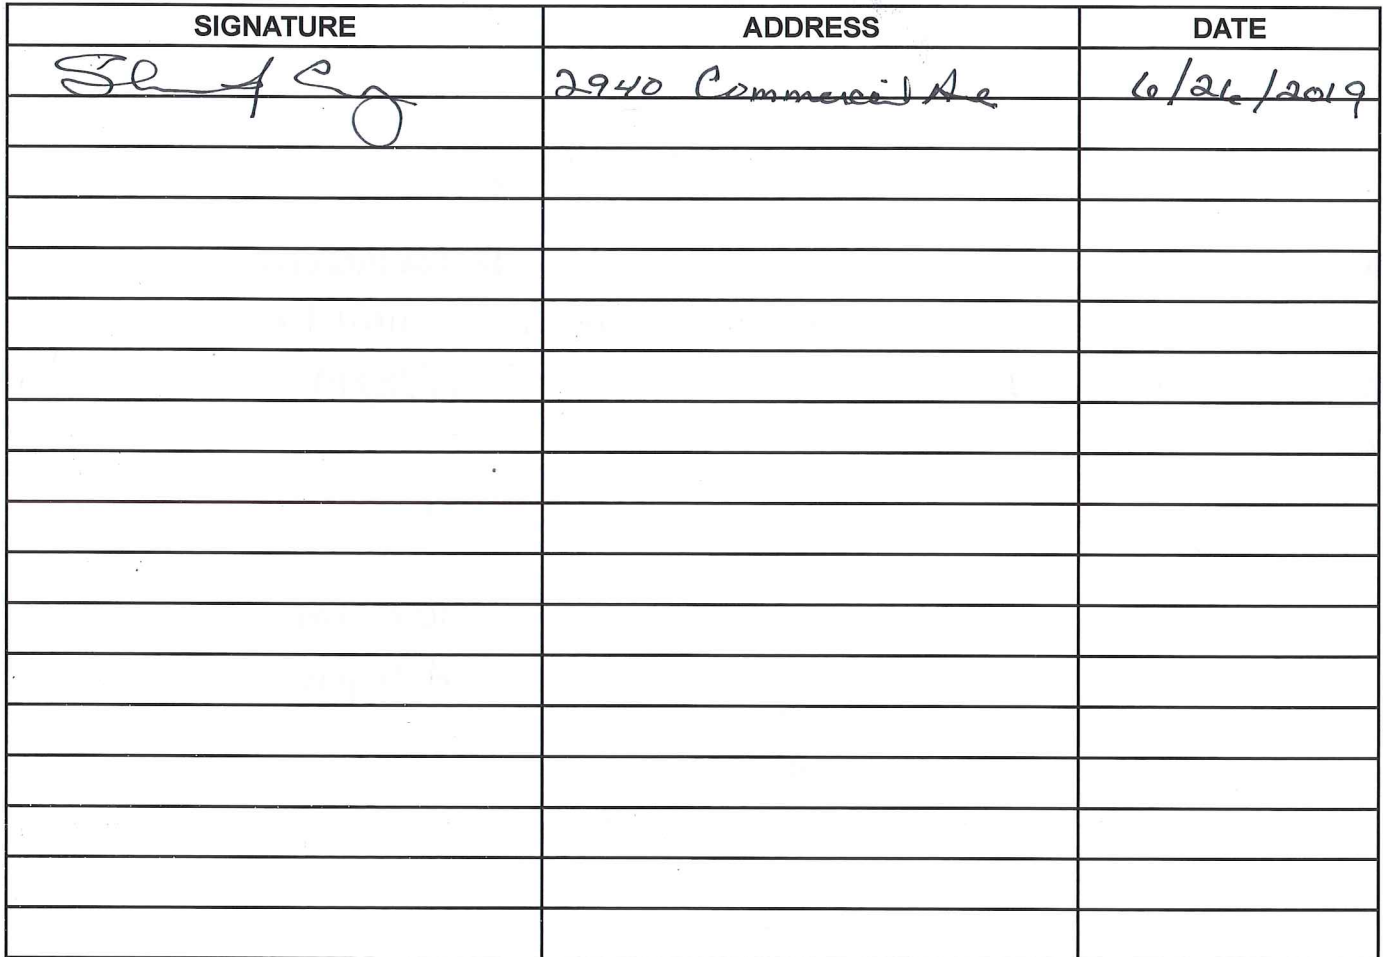 SIGNATURE ADDRESS DATE
2940 Commercial Ave 6/26/2019